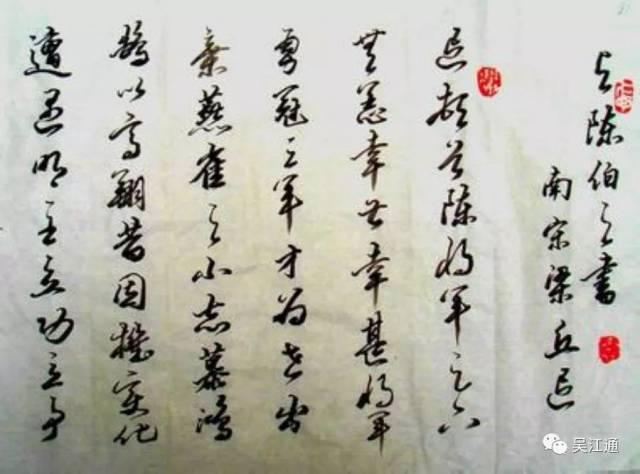 与陈伯之書
南宋梁丘迟
迟顿首陈将军足下
無恙幸甚幸甚将军
勇冠三军才为世出
棄燕雀之小志慕鸿
鹄以高翔昔因機变化
遭遇明主立功立事
吴江通